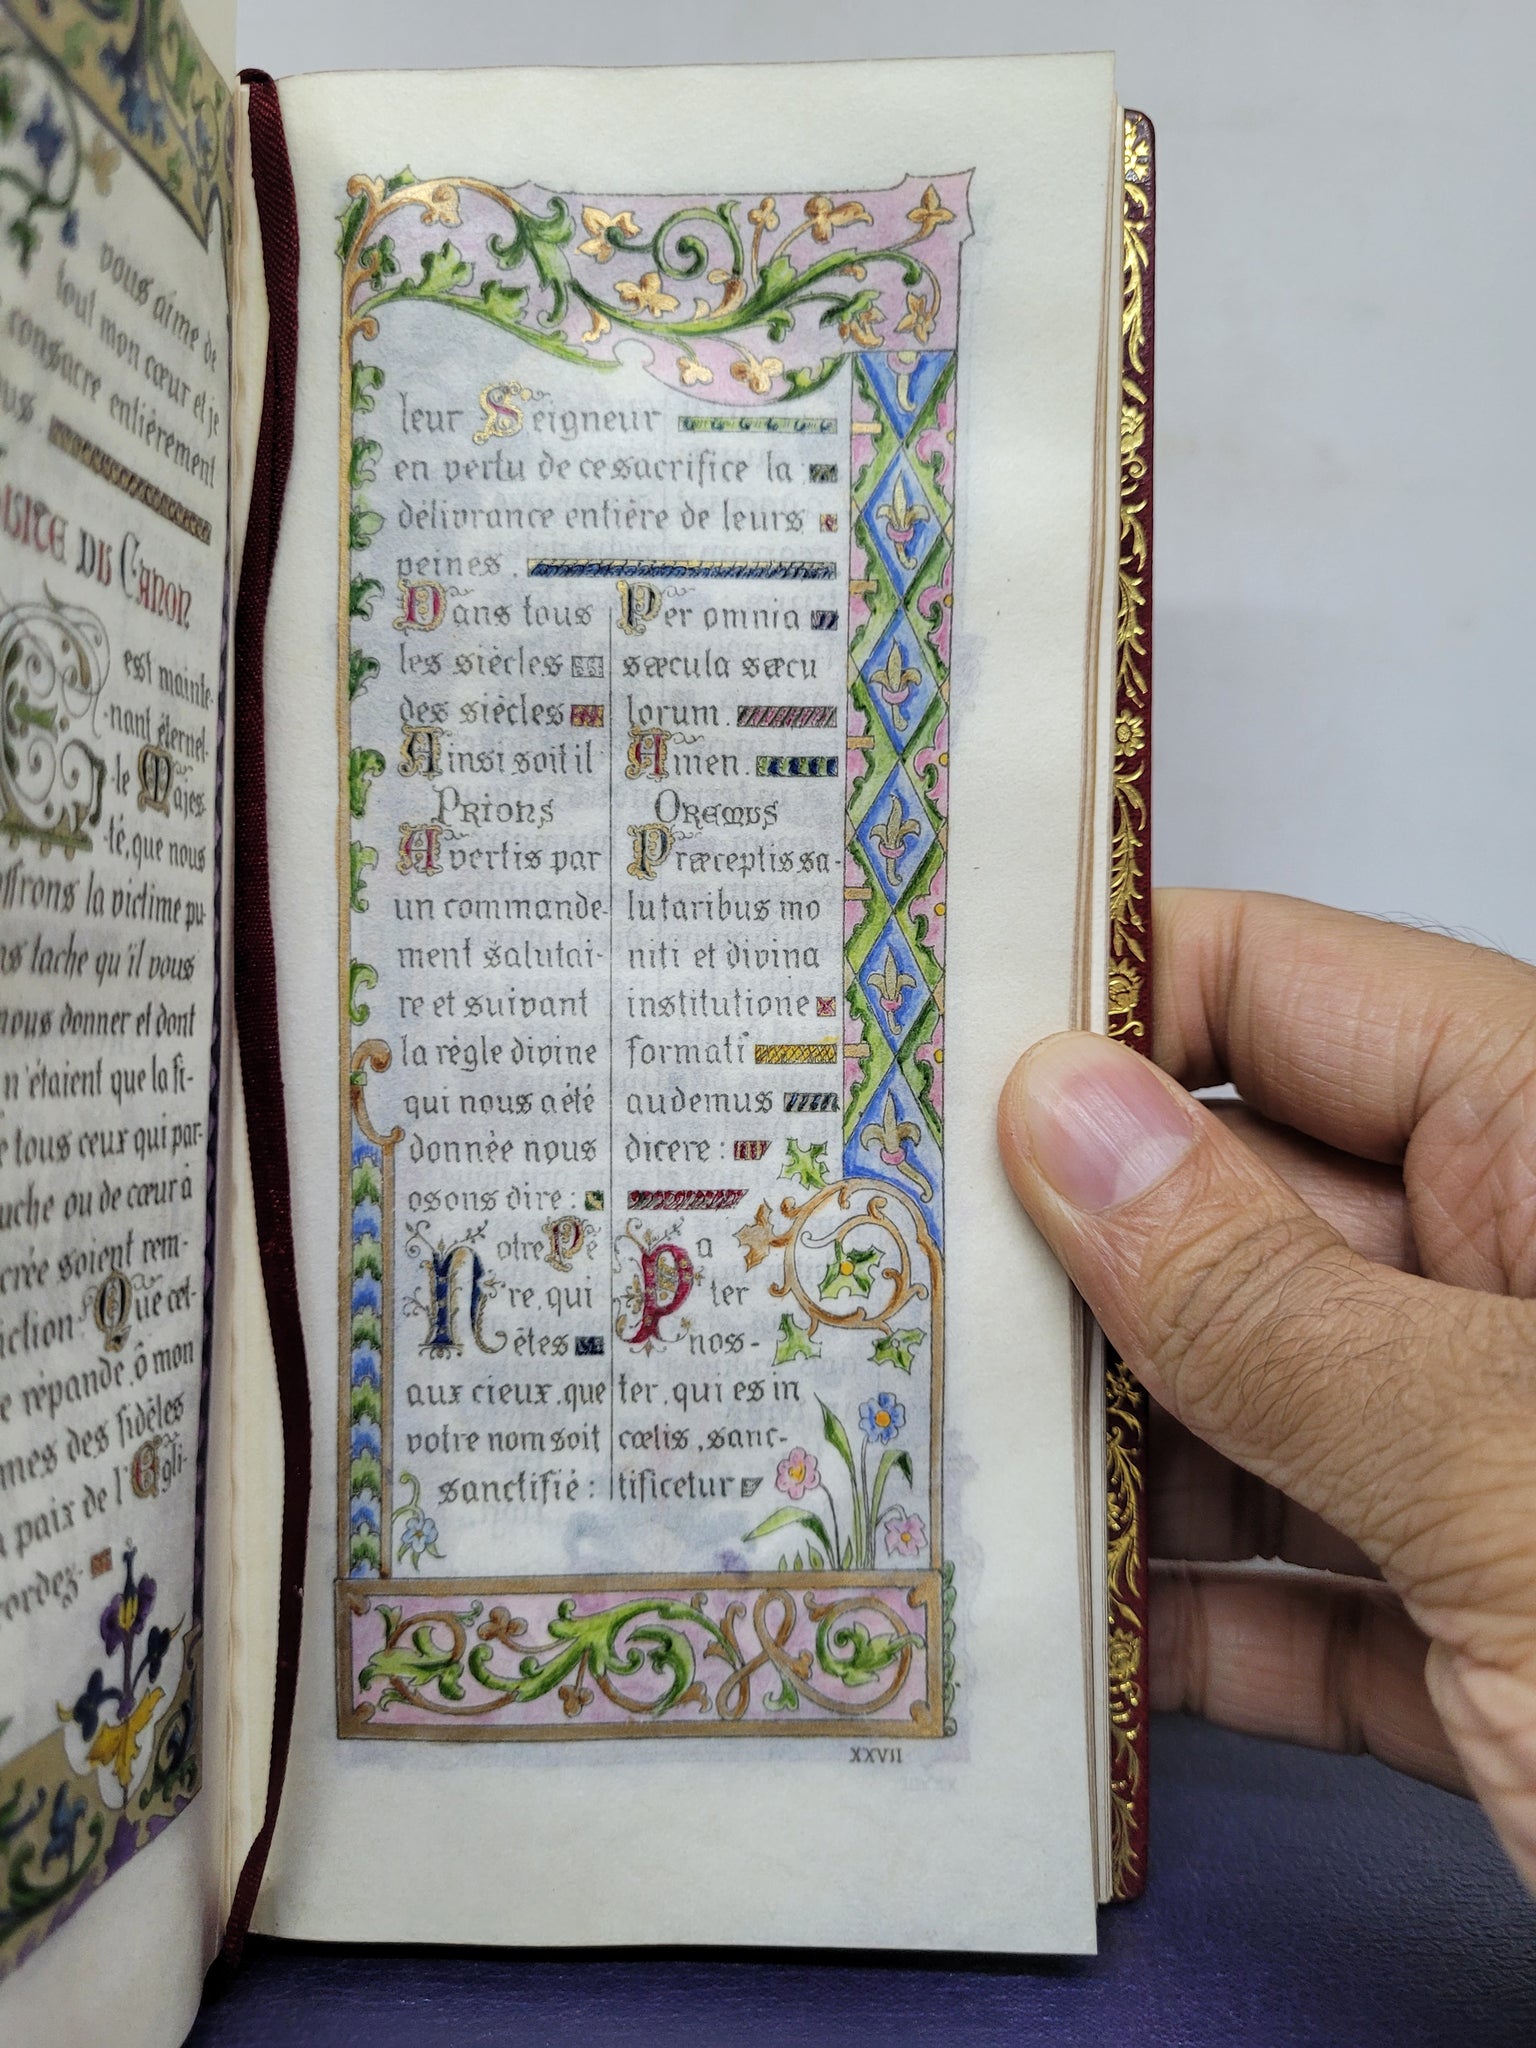 vous aime de
tout mon cœur et je
consacre entièrement
DU CANON
est mainte-
-nant éternel-
-le Majes-
-té, que nous
offrons la victime pu-
tache qu'il vous
nous donner et dont
n'étaient que la fi-
tous ceux qui par-
ou de cœur à
soient rem-
Que cet-
répande, ô mon
des fidèles
paix de l'Égli-
leur Seigneur
en vertu de ce sacrifice la
délivrance entière de leurs
peines.
Dans tous
les siècles
des siècles
Ainsi soit il
PRIONS
Avertis par
un commande-
ment salutai-
re et suivant
la règle divine
qui nous a été
donnée nous
osons dire :
Notre Pè
re, qui
êtes
aux cieux, que
votre nom soit
sanctifié :
Per omnia
sæcula sæcu
lorum.
Amen.
OREMUS
Præceptis sa-
lutaribus mo
niti et divina
institutione
formati
audemus
dicere :
Pa
ter
nos-
ter, qui es in
cœlis, sanc-
tificetur
XXVII